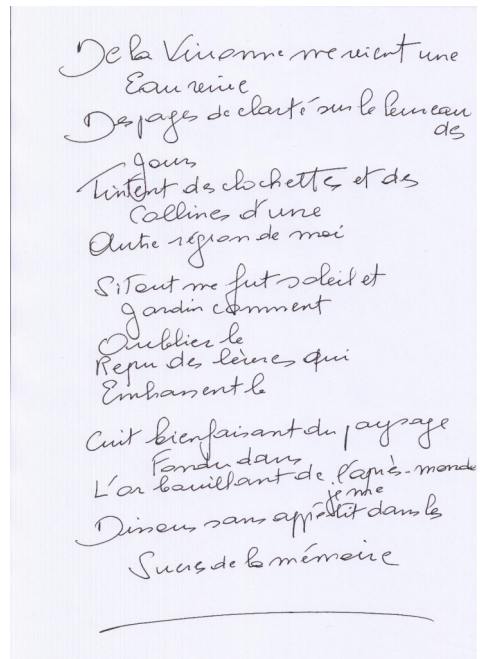 De la Vivonne me vient une
Eau reine
Des pages de clarté sur le berceau
des
Jours
Tintent des clochettes et des
Collines d'une
Autre région de moi
Si Tout me fut soleil et
Jardin comment
Oublier le
Repu des lèvres qui
Embrassent le
Cuit bienfaisant du paysage
Fondu dans
L'or bouillant de l'après-monde
je me
Dissous sans appétit dans les
Sucres de la mémoire